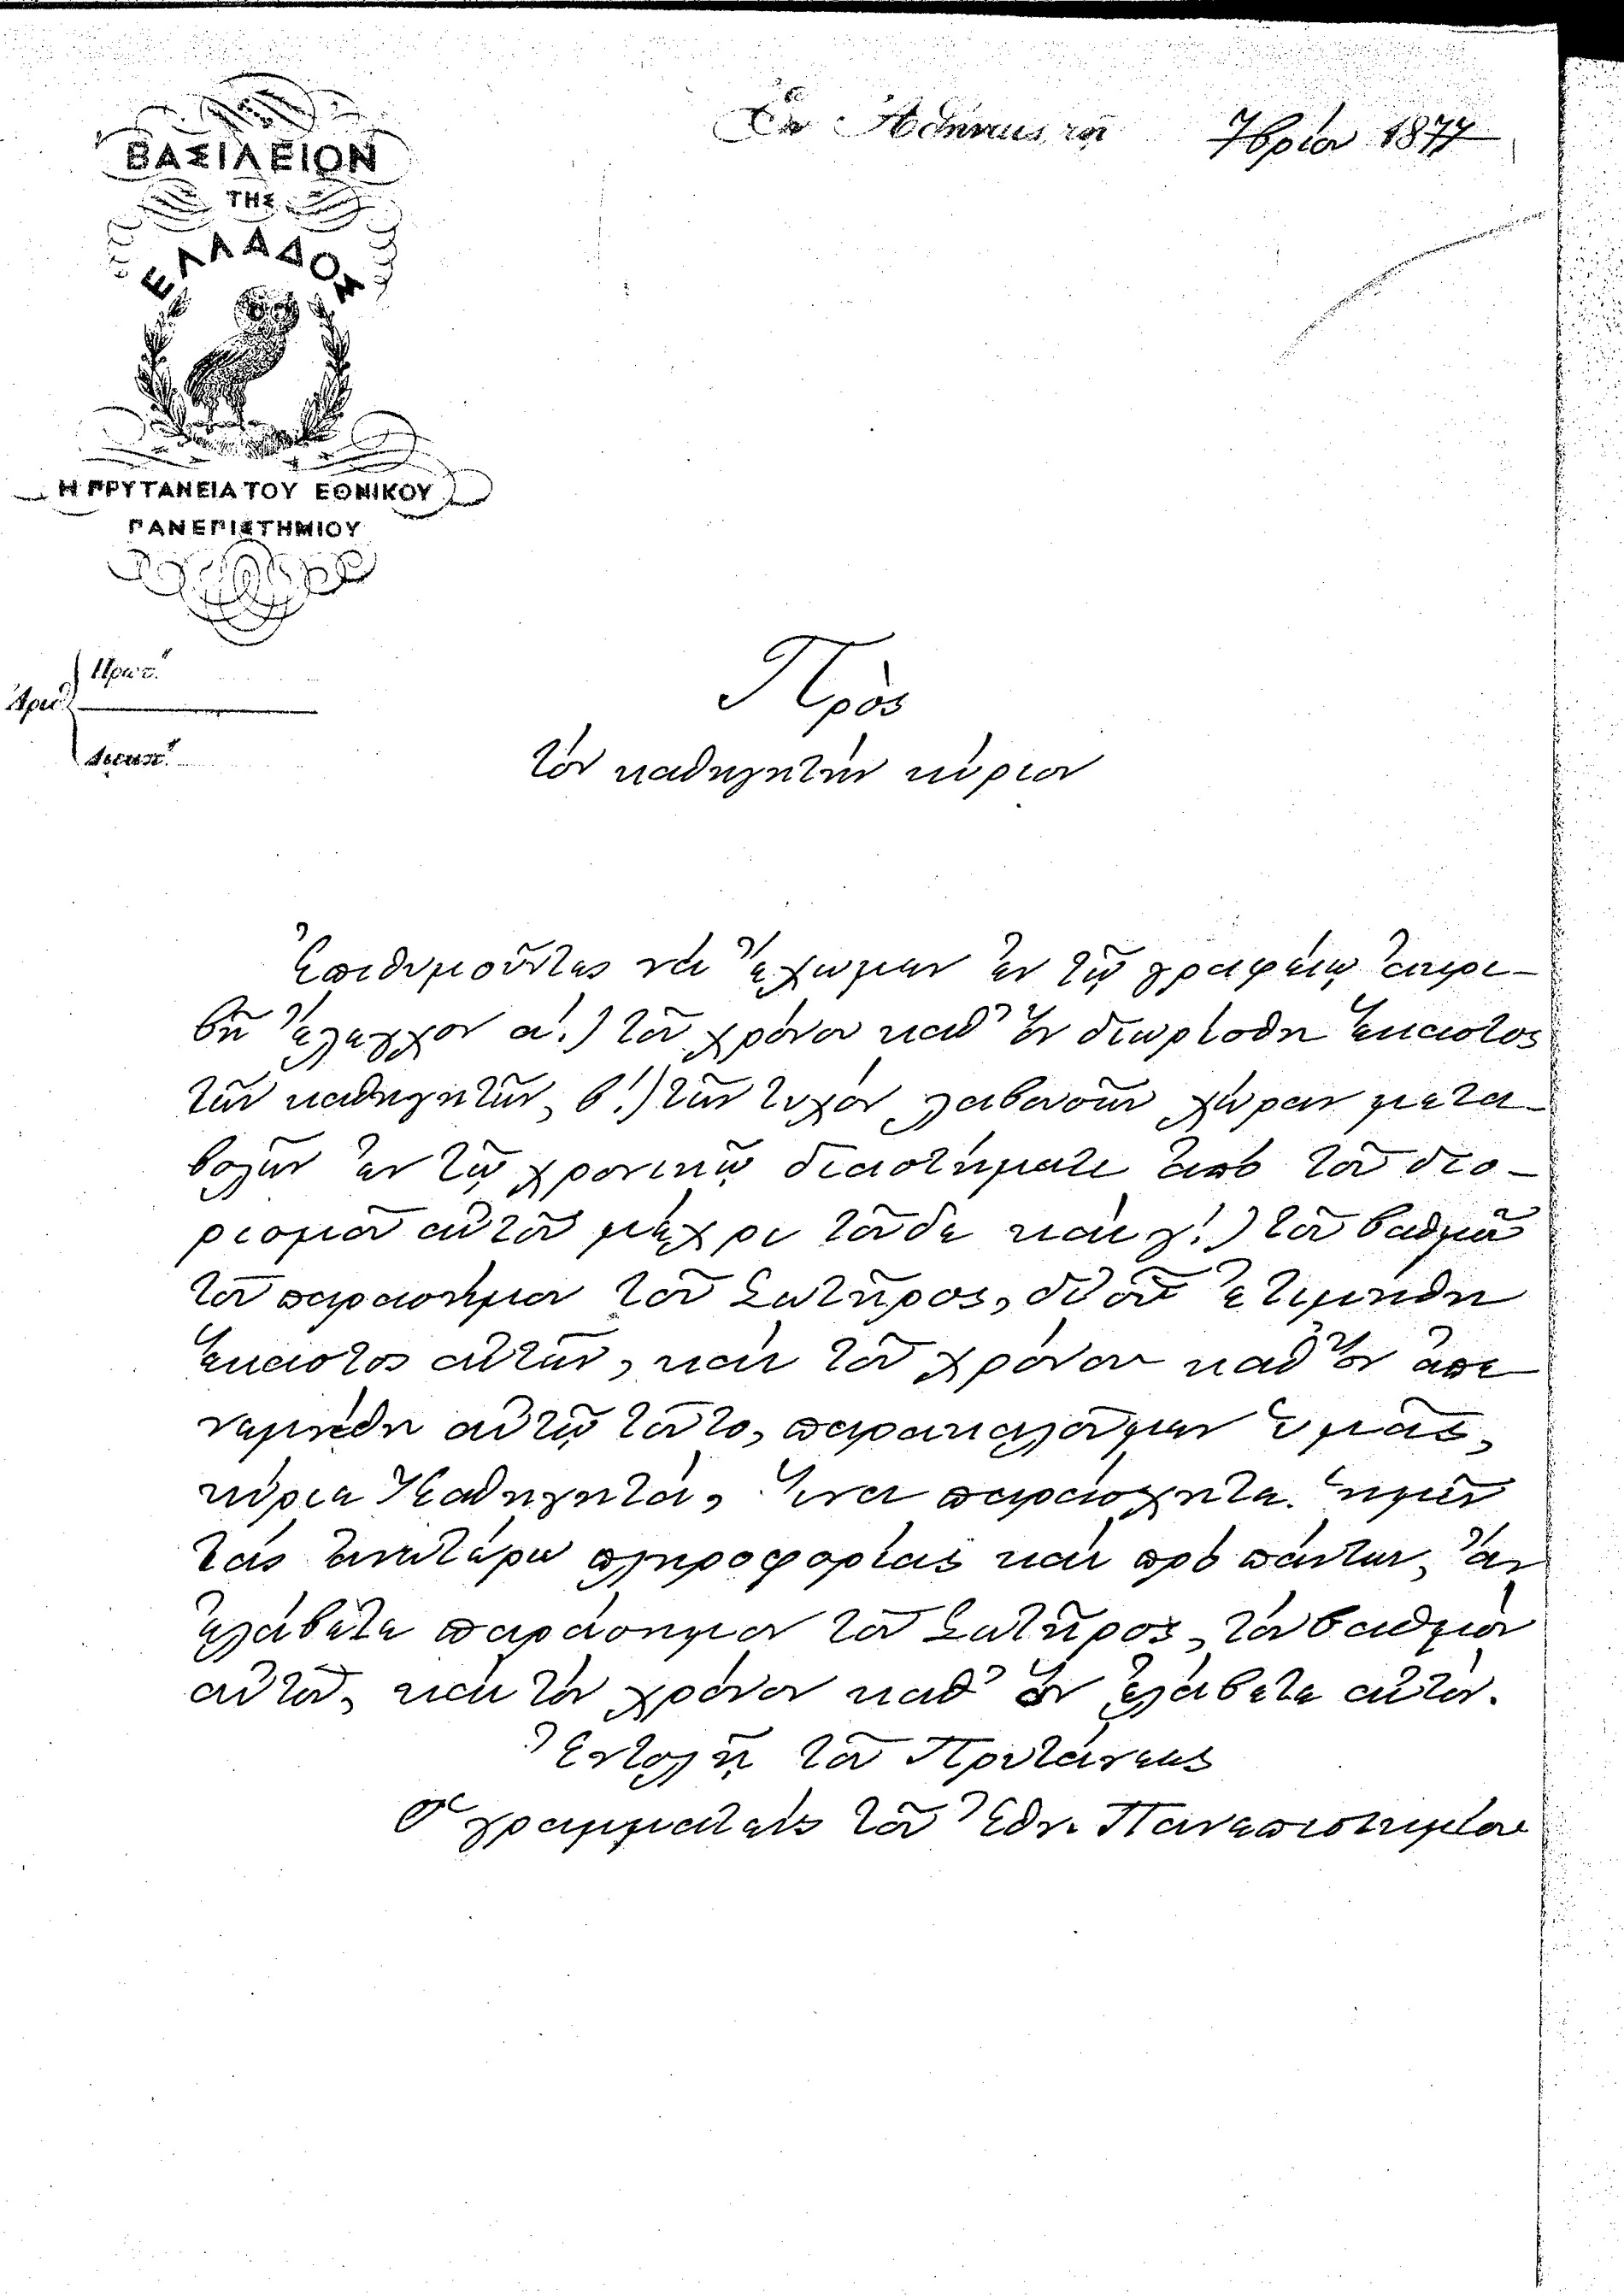 Ἐν Ἀθήναις τῇ 7βρίου 1877
ΒΑΣΙΛΕΙΟΝ
ΤΗΣ
ΕΛΛΑΔΟΣ
Η ΠΡΥΤΑΝΕΙΑ ΤΟΥ ΕΘΝΙΚΟΥ
ΠΑΝΕΠΙΣΤΗΜΙΟΥ
Πρωτ.
Ἀριθ.
Διεκπ.
Πρὸς
τὸν καθηγητὴν κύριον
Ἐπιθυμοῦντες νὰ ἔχωμεν ἐν τῷ γραφείῳ ἀκρι-
βῆ ἔλεγχον α!.) τοῦ χρόνου καθ' ὃν διωρίσθη ἕκαστος
τῶν καθηγητῶν, β!.) τῶν τυχὸν λαβουσῶν χώραν μετα-
βολῶν ἐν τῷ χρονικῷ διαστήματι ἀπὸ τοῦ διο-
ρισμοῦ αὐτοῦ μέχρι τοῦδε καὶ γ!.) τοῦ βαθμοῦ
τοῦ παρασήμου τοῦ Σωτῆρος, δι' οὗ ἐτιμήθη
ἕκαστος αὐτῶν, καὶ τοῦ χρόνου καθ' ὃν ἀπε
νεμήθη αὐτῷ τοῦτο, παρακαλοῦμεν ὑμᾶς,
κύριε Καθηγητά, ἵνα παράσχητε ἡμῖν
τὰς ἀνωτέρω πληροφορίας καὶ πρὸ πάντων, ἂν
ἐλάβετε παράσημον τοῦ Σωτῆρος, τὸν βαθμὸν
αὐτοῦ, καὶ τὸν χρόνον καθ' ὃν ἐλάβετε αὐτό.
Ἐντολῇ τοῦ Πρυτάνεως
Ὁ γραμματεὺς τοῦ Ἐθν. Πανεπιστημίου